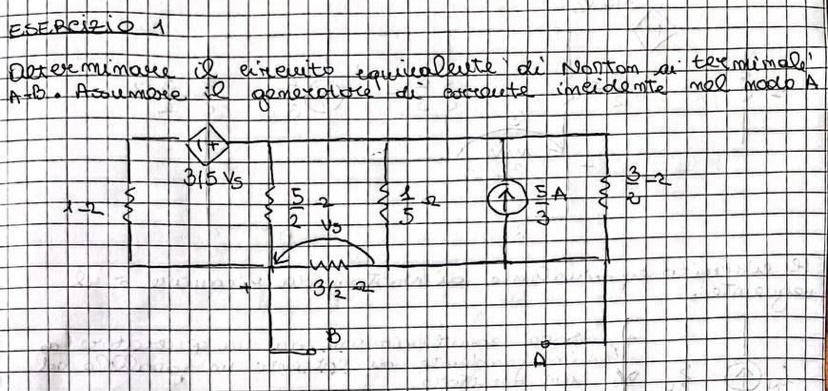 ESERCIZIO 1
Determinare il circuito equivalente di Norton ai terminali
A-B. Assumere il generatore di corrente incidente nel nodo A
- +
3/5 Vs
1 Ω
5/2 Ω
1/5 Ω
5/3 A
3/2 Ω
Vs
+
3/2 Ω
B
A